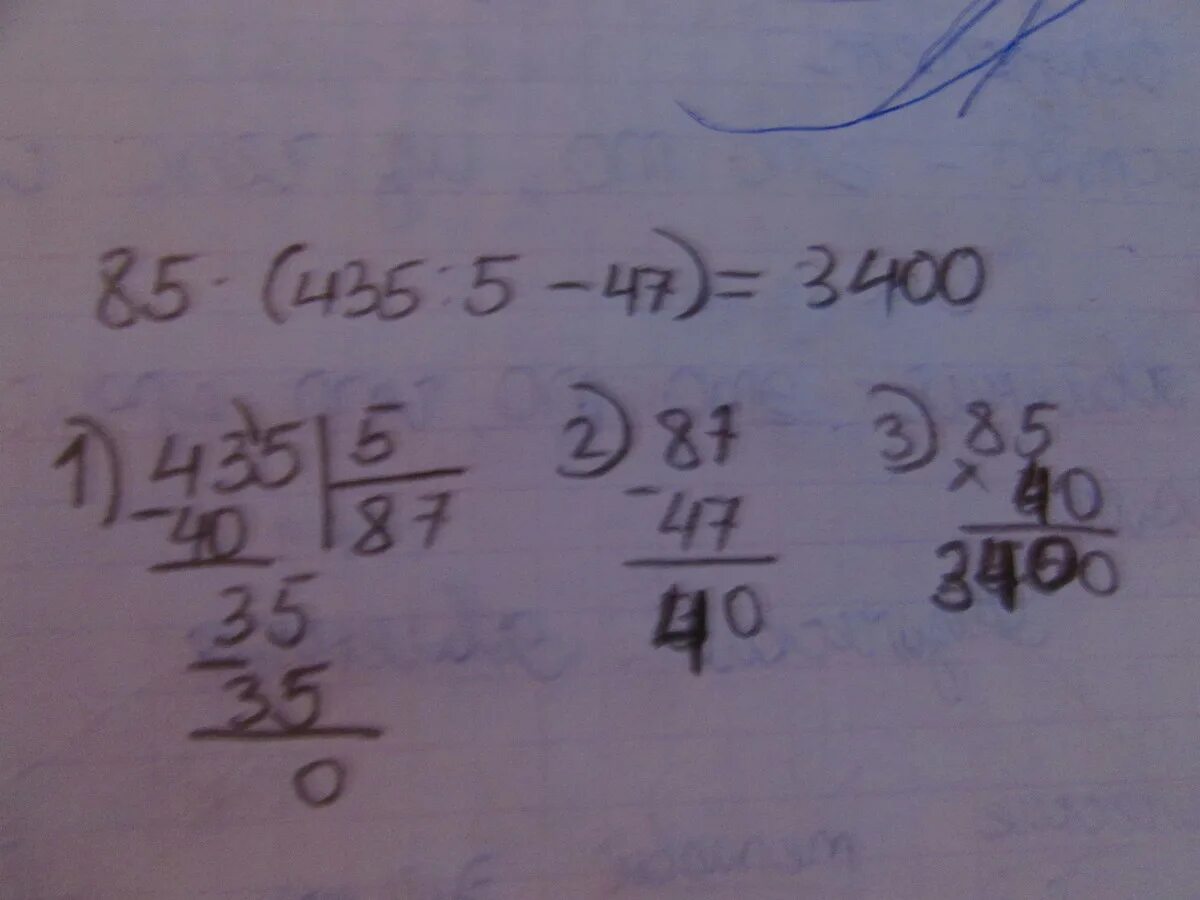 85 · (435 : 5 - 47) = 3400
1) 435 | 5
- 40 | 87
35
- 35
0
2) 87
- 47
40
3) 85
× 40
3400